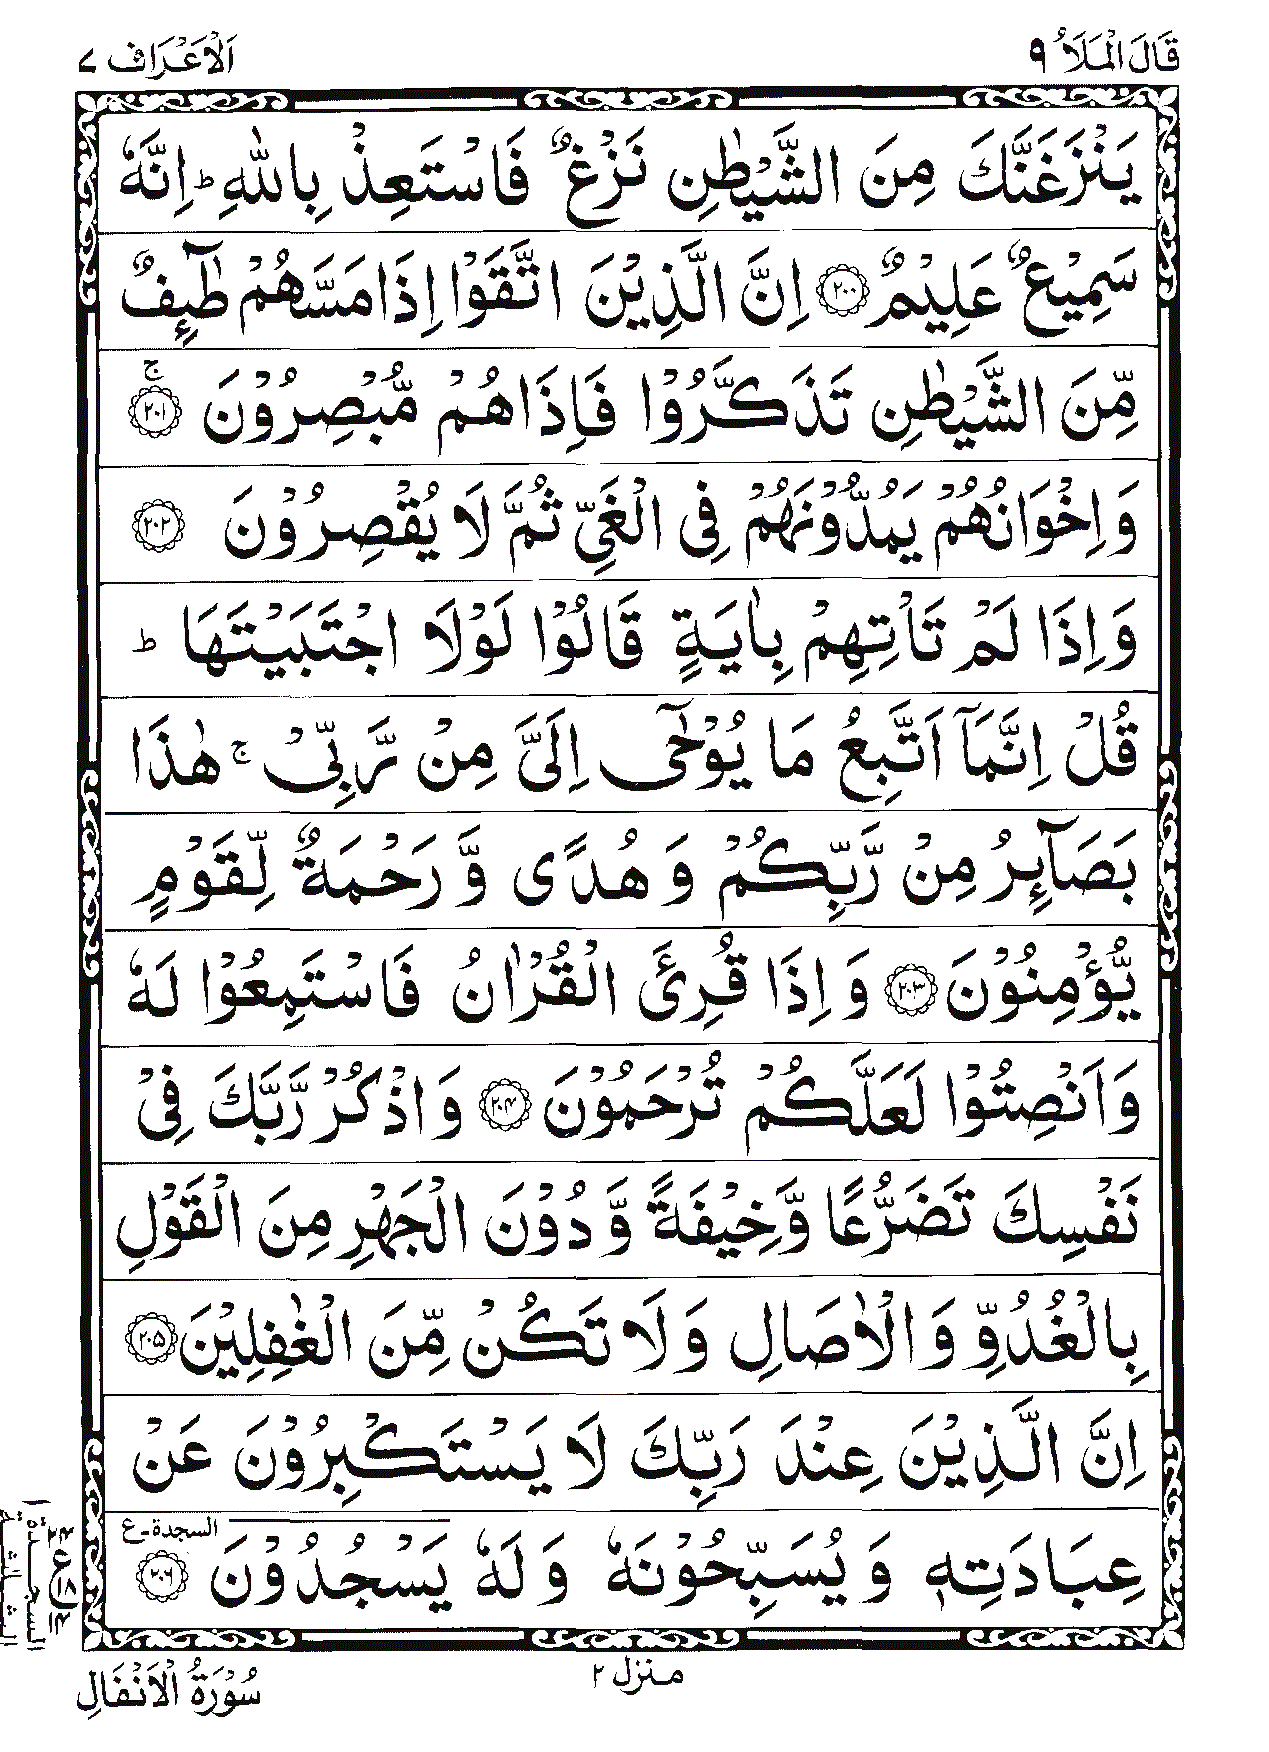 قَالَ الْمَلَاُ ٩
اَلْاَعْرَاف ٧
يَنْزَغَنَّكَ مِنَ الشَّيْطٰنِ نَزْغٌ فَاسْتَعِذْ بِاللّٰهِ ؕ اِنَّهٗ
سَمِيْعٌ عَلِيْمٌ ﴿٢٠٠﴾ اِنَّ الَّذِيْنَ اتَّقَوْا اِذَا مَسَّهُمْ طٰٓئِفٌ
مِّنَ الشَّيْطٰنِ تَذَكَّرُوْا فَاِذَا هُمْ مُّبْصِرُوْنَ ﴿٢٠١﴾ ۚ
وَاِخْوَانُهُمْ يَمُدُّوْنَهُمْ فِي الْغَيِّ ثُمَّ لَا يُقْصِرُوْنَ ﴿٢٠٢﴾
وَاِذَا لَمْ تَاْتِهِمْ بِاٰيَةٍ قَالُوْا لَوْلَا اجْتَبَيْتَهَا ؕ
قُلْ اِنَّمَآ اَتَّبِعُ مَا يُوْحٰٓى اِلَيَّ مِنْ رَّبِّيْ ۚ هٰذَا
بَصَآئِرُ مِنْ رَّبِّكُمْ وَ هُدًى وَّ رَحْمَةٌ لِّقَوْمٍ
يُّؤْمِنُوْنَ ﴿٢٠٣﴾ وَ اِذَا قُرِئَ الْقُرْاٰنُ فَاسْتَمِعُوْا لَهٗ
وَ اَنْصِتُوْا لَعَلَّكُمْ تُرْحَمُوْنَ ﴿٢٠٤﴾ وَ اذْكُرْ رَّبَّكَ فِيْ
نَفْسِكَ تَضَرُّعًا وَّخِيْفَةً وَّ دُوْنَ الْجَهْرِ مِنَ الْقَوْلِ
بِالْغُدُوِّ وَ الْاٰصَالِ وَ لَا تَكُنْ مِّنَ الْغٰفِلِيْنَ ﴿٢٠٥﴾
اِنَّ الَّذِيْنَ عِنْدَ رَبِّكَ لَا يَسْتَكْبِرُوْنَ عَنْ
السجدة ـ ع
عِبَادَتِهٖ وَ يُسَبِّحُوْنَهٗ وَ لَهٗ يَسْجُدُوْنَ ﴿٢٠٦﴾
السجدة ١
منزل ٢
سُوْرَةُ الْاَنْفَالِ